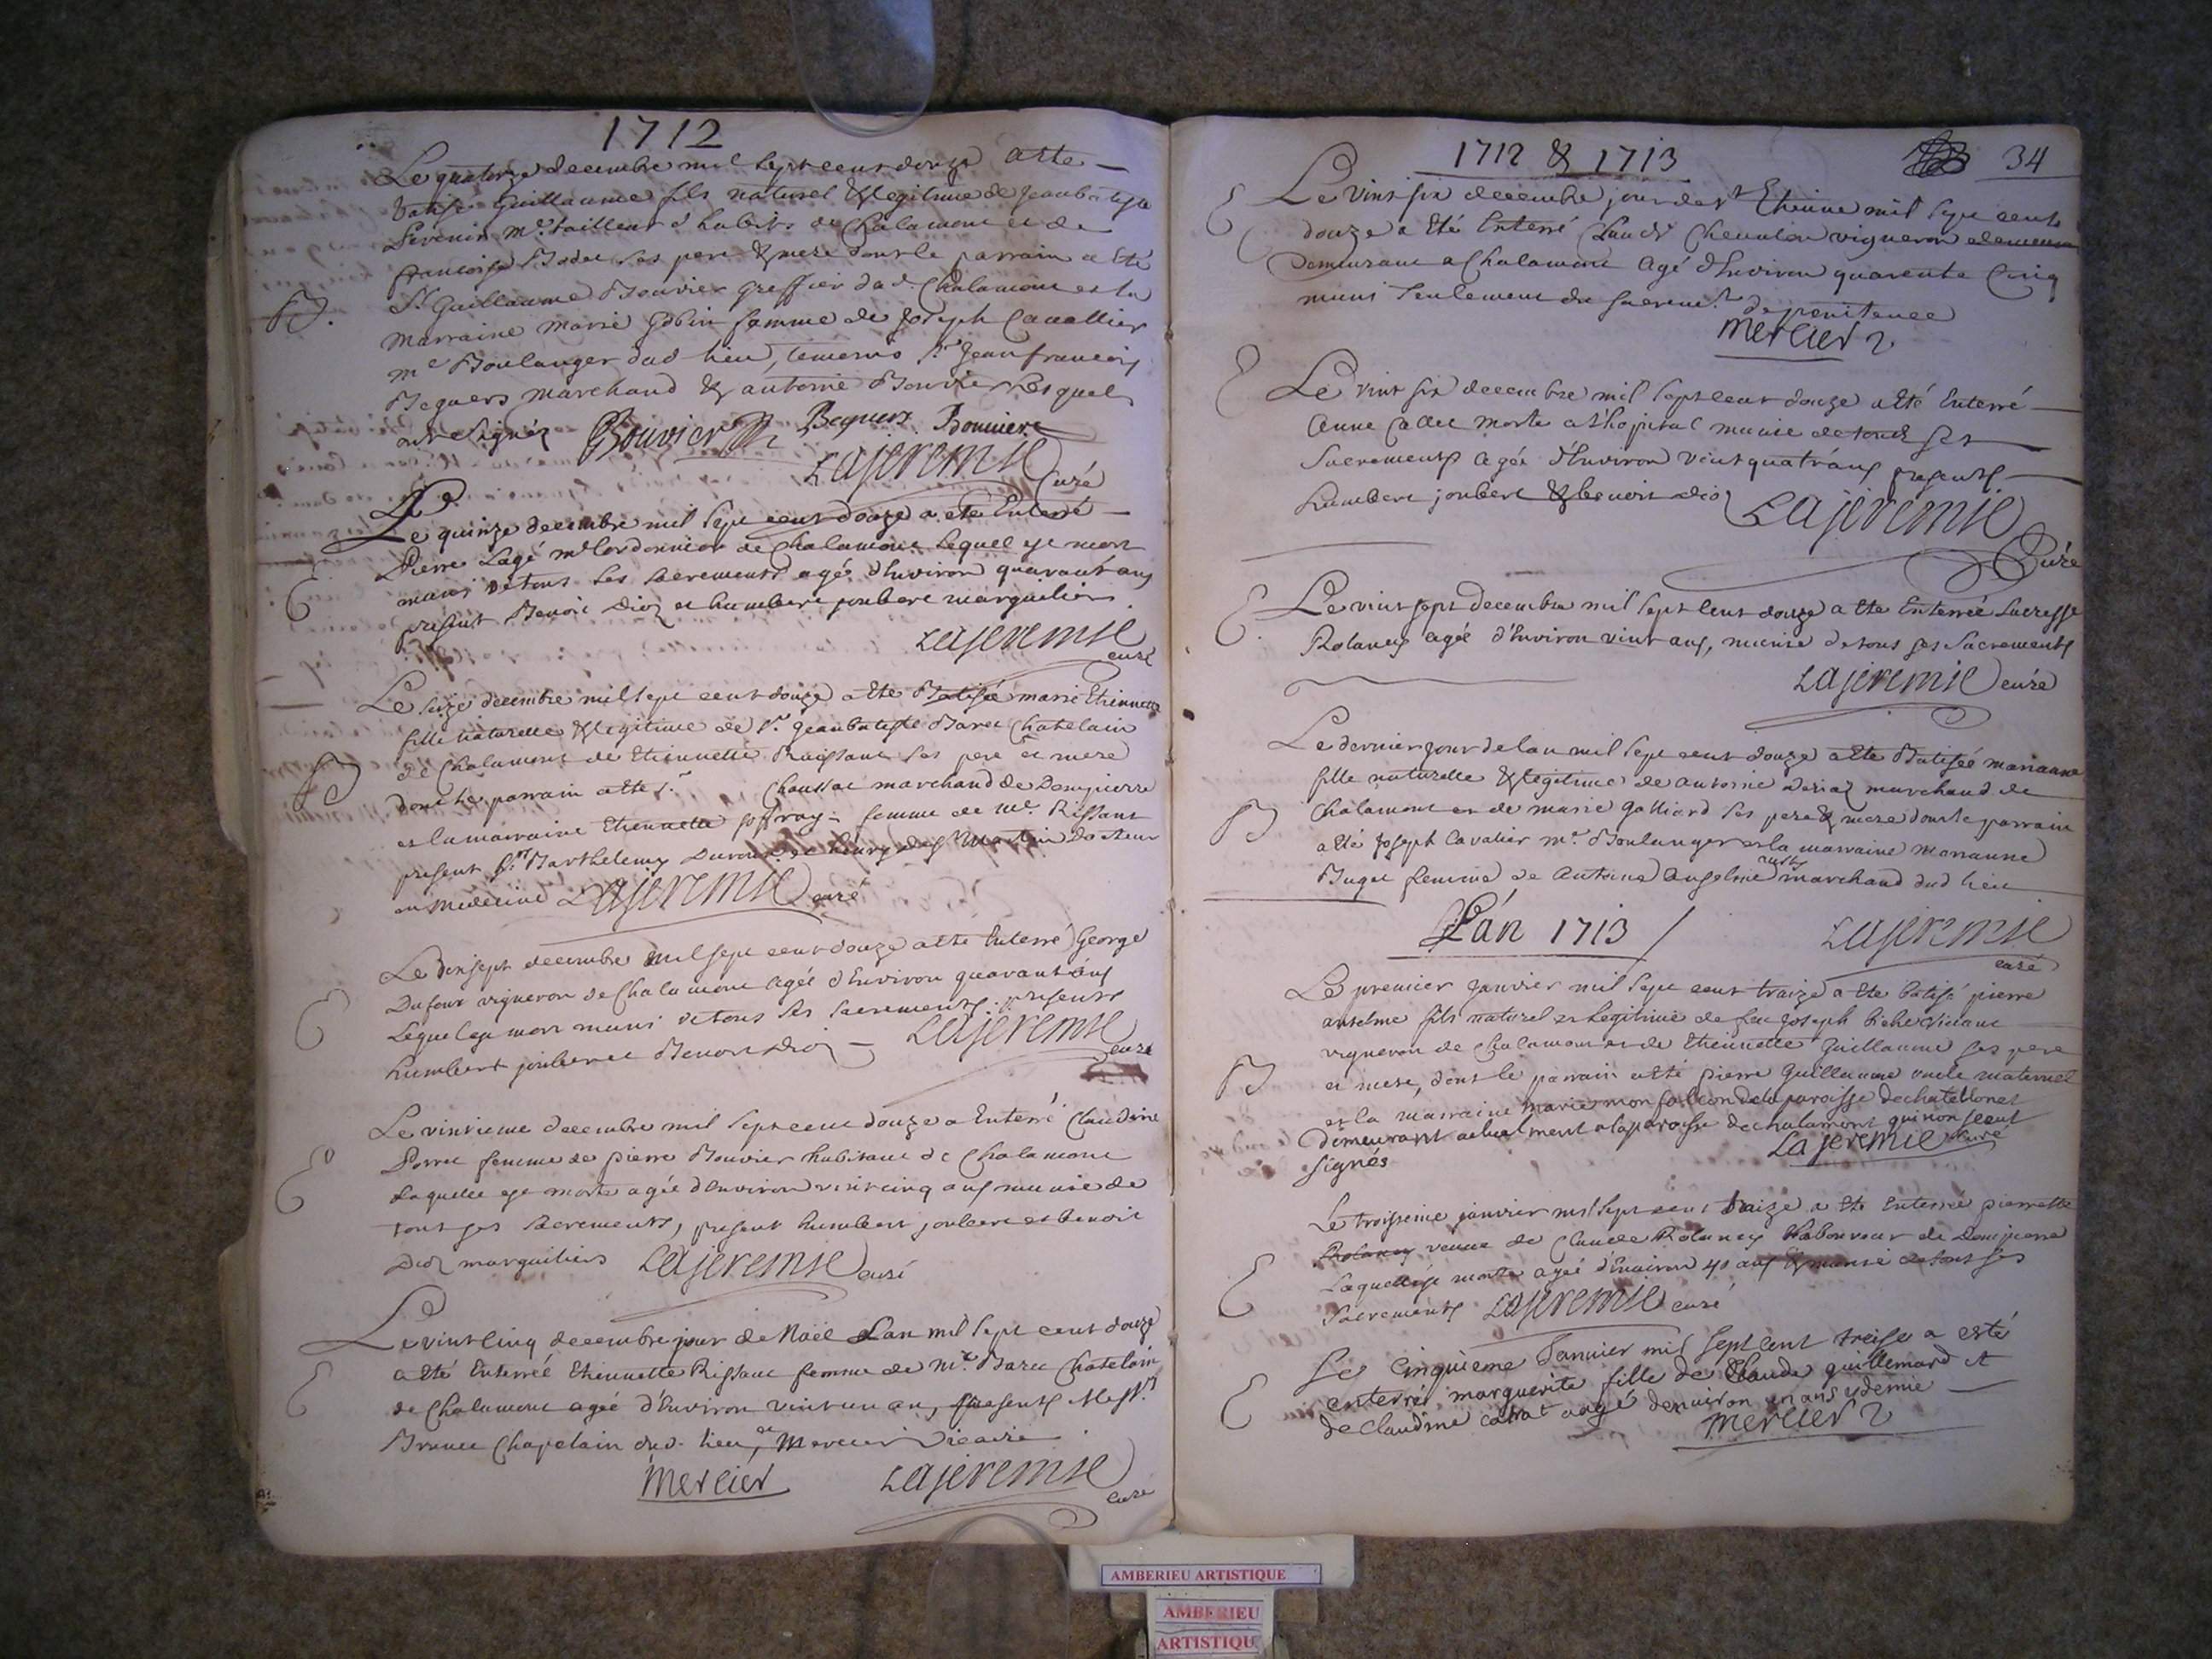 1712
Le quatorze decembre mil sept cent douze a ete
batisé Guillaume fils naturel & legitime de Jeanbatiste
me. tailleur d'habits de Chalamont et de
francoise Bodet ses pere & mere dont le parrain a eté
Sr. Guillaume Bouvier greffier dud. Chalamont et la
B.
marraine marie Gobin famme de Joseph Cavallier
me Boulanger dud lieu, temoins Sr Jean francois
Beguers marchand & antoine Bouvier lesquels
ont signéz Bouvier Beguers Bouviere
Lajeremie
Curé
Le quinze decembre mil sept cent douze a ete Enterré
Pierre Lagé me Cordonnier de Chalamont lequel est mort
muni de tous ses sacrements agé d'Environ quarant ans
E
present Benoit Dioz et humbert joubert marguiliers
Lajeremie
curé
Le seize decembre mil sept cent douze a ete Batisée marie Etiennette
fille naturelle & legitime de Sr. Jeanbatiste Baret Chatelain
de Chalamont de Etiennette Ruissant ses pere et mere
B
dont le parrain a ete Sr. Chaussat marchand de Dompierre
et la marraine Etiennette joffray femme de Me. Rissant
present Sr. Barthelemy et henry des Martin Docteur
en medecine Lajeremie curé
Le dixsept decembre mil sept cent douze a ete Enterré George
Dufour vigneron de Chalamont agéé d'Environ quarant ans
E
lequel est mort muni de tous ses sacrements; presents
humbert joubert et Benoit Dioz Lajeremie
curé
Le vintieme decembre mil sept cent douze a Enterré Claudine
Porret femme de pierre Bouvier habitant de Chalamont
E
laquelle est morte agée d'Environ vint cinq ans munie de
tout ses sacrements, present humbert joubert et benoit
Dioz marguiliers Lajeremie curé
Le vint cinq decembre jour de Noël Lan mil sept cent douze
a eté Enterréé Etiennette Rissant femme de Mre. Baret Chatelain
E
de Chalamont agéé d'Environ vint un an, presents Messrs
Brunet Chapelain dud. lieu, et Mercier vicaire
Mercier Lajeremie
curé
1712 & 1713 34
Le vint six decembre jour de St Etienne mil sept cents
E
douze a eté Enterré Claude Chevalon vigneron
Demeurant a Chalamont agé d'Environ quarente Cinq
muni seulement du sacremt. de penitence
mercier
Le vint six decembre mil sept cent douze a eté Enterré
E
Anne Callet morte a l'hopital munie de tout ses
Sacrements agéé d'Environ vint quatr'ans presents
humbert joubert & benoit Dioz Lajeremie
Curé
Le vint sept decembre mil sept cent douze a ete Enterréé Lucresse
E.
Rolancy agéé d'Environ vint ans, munie de tous ses Sacrements
Lajeremie curé
Le dernier jour de lan mil sept cent douze a ete Batiséé marianne
fille naturelle & legitime de antoine Dériaz marchand de
B
Chalamont et de marie Galliard ses pere & mere dont le parrain
a eté Joseph Cavalier me. Boulanger et la marraine Marianne
Buget femme de Antoine Anselme marchand dud lieu
Lán 1713 Lajeremie
curé
Le premier janvier mil sept cent traize a ete batisé pierre
anselme fils naturel et legitime de feu Joseph
vigneron de Chalamont et de Etiennette Guillaume ses pere
B
et mere, dont le parrain a eté pierre Guillaume oncle maternel
et la marraine marie monfalcon de la paroisse de chatellonet
demeurant actuelment a la paroisse de chalamont qui non sceut
signés Lajeremie curé
Le troisieme janvier mil sept cent traize a ete Enterréé pierrette
Rolancy veuve de Claude Rolancy Laboureur de Dompierre
E
Laquelle est morte agéé d'Environ 40 ans & munie de tout ses
Sacrements Lajeremie curé
Le Cinquieme Januier mil sept cent treise a esté
enterrée marguerite fille de Claude guillemard et
E
de Claudine agé denuiron un ans y demie
mercier
AMBERIEU ARTISTIQUE
AMBERIEU
ARTISTIQU